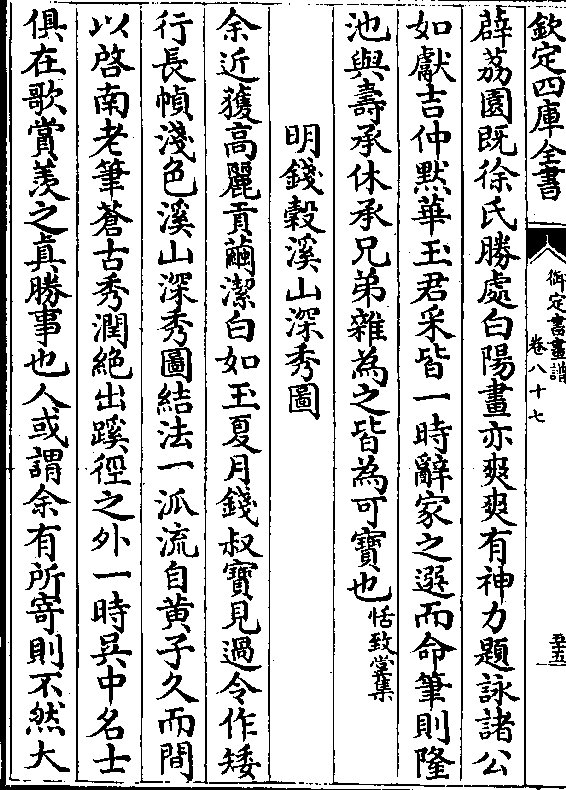 欽定四庫全書
御定書畫譜
卷八十七
薜荔園既徐氏勝處白陽畫亦爽爽有神力題詠諸公
如獻吉仲黙華玉君采皆一時辭家之選而命筆則隆
池與壽承休承兄弟雜為之皆為可寶也恬致堂集
明錢穀溪山深秀圖
余近獲高麗貢繭潔白如玉夏月錢叔寶見過令作矮
行長幀淺色溪山深秀圖結法一派流自黄子久而間
以啓南老筆蒼古秀潤絶出蹊徑之外一時吳中名士
俱在歌賞羡之真勝事也人或謂余有所寄則不然大